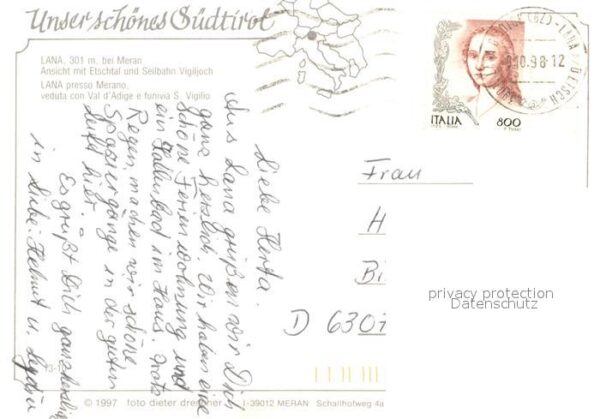 Unser schönes Südtirol
LANA, 301 m, bei Meran
Ansicht mit Etschtal und Seilbahn Vigiljoch
LANA presso Merano,
veduta con Val d'Adige e funivia S. Vigilio
Liebe Herta.
Aus Lana grüßen wir Dich
ganz herzlich. Wir haben eine
schöne Ferienwohnung und
ein Hallenbad im Haus. Trotz
Regen, machen wir schöne
Spaziergänge in der guten
Luft hier.
Es grüßt Dich ganz herzlich
in Liebe: Helmut u.
ITALIA 800
LANA
10.98-12
Frau
H
Bi
D 6307
privacy protection
Datenschutz
© 1997 foto dieter drescher I-39012 MERAN Schallhofweg 4a